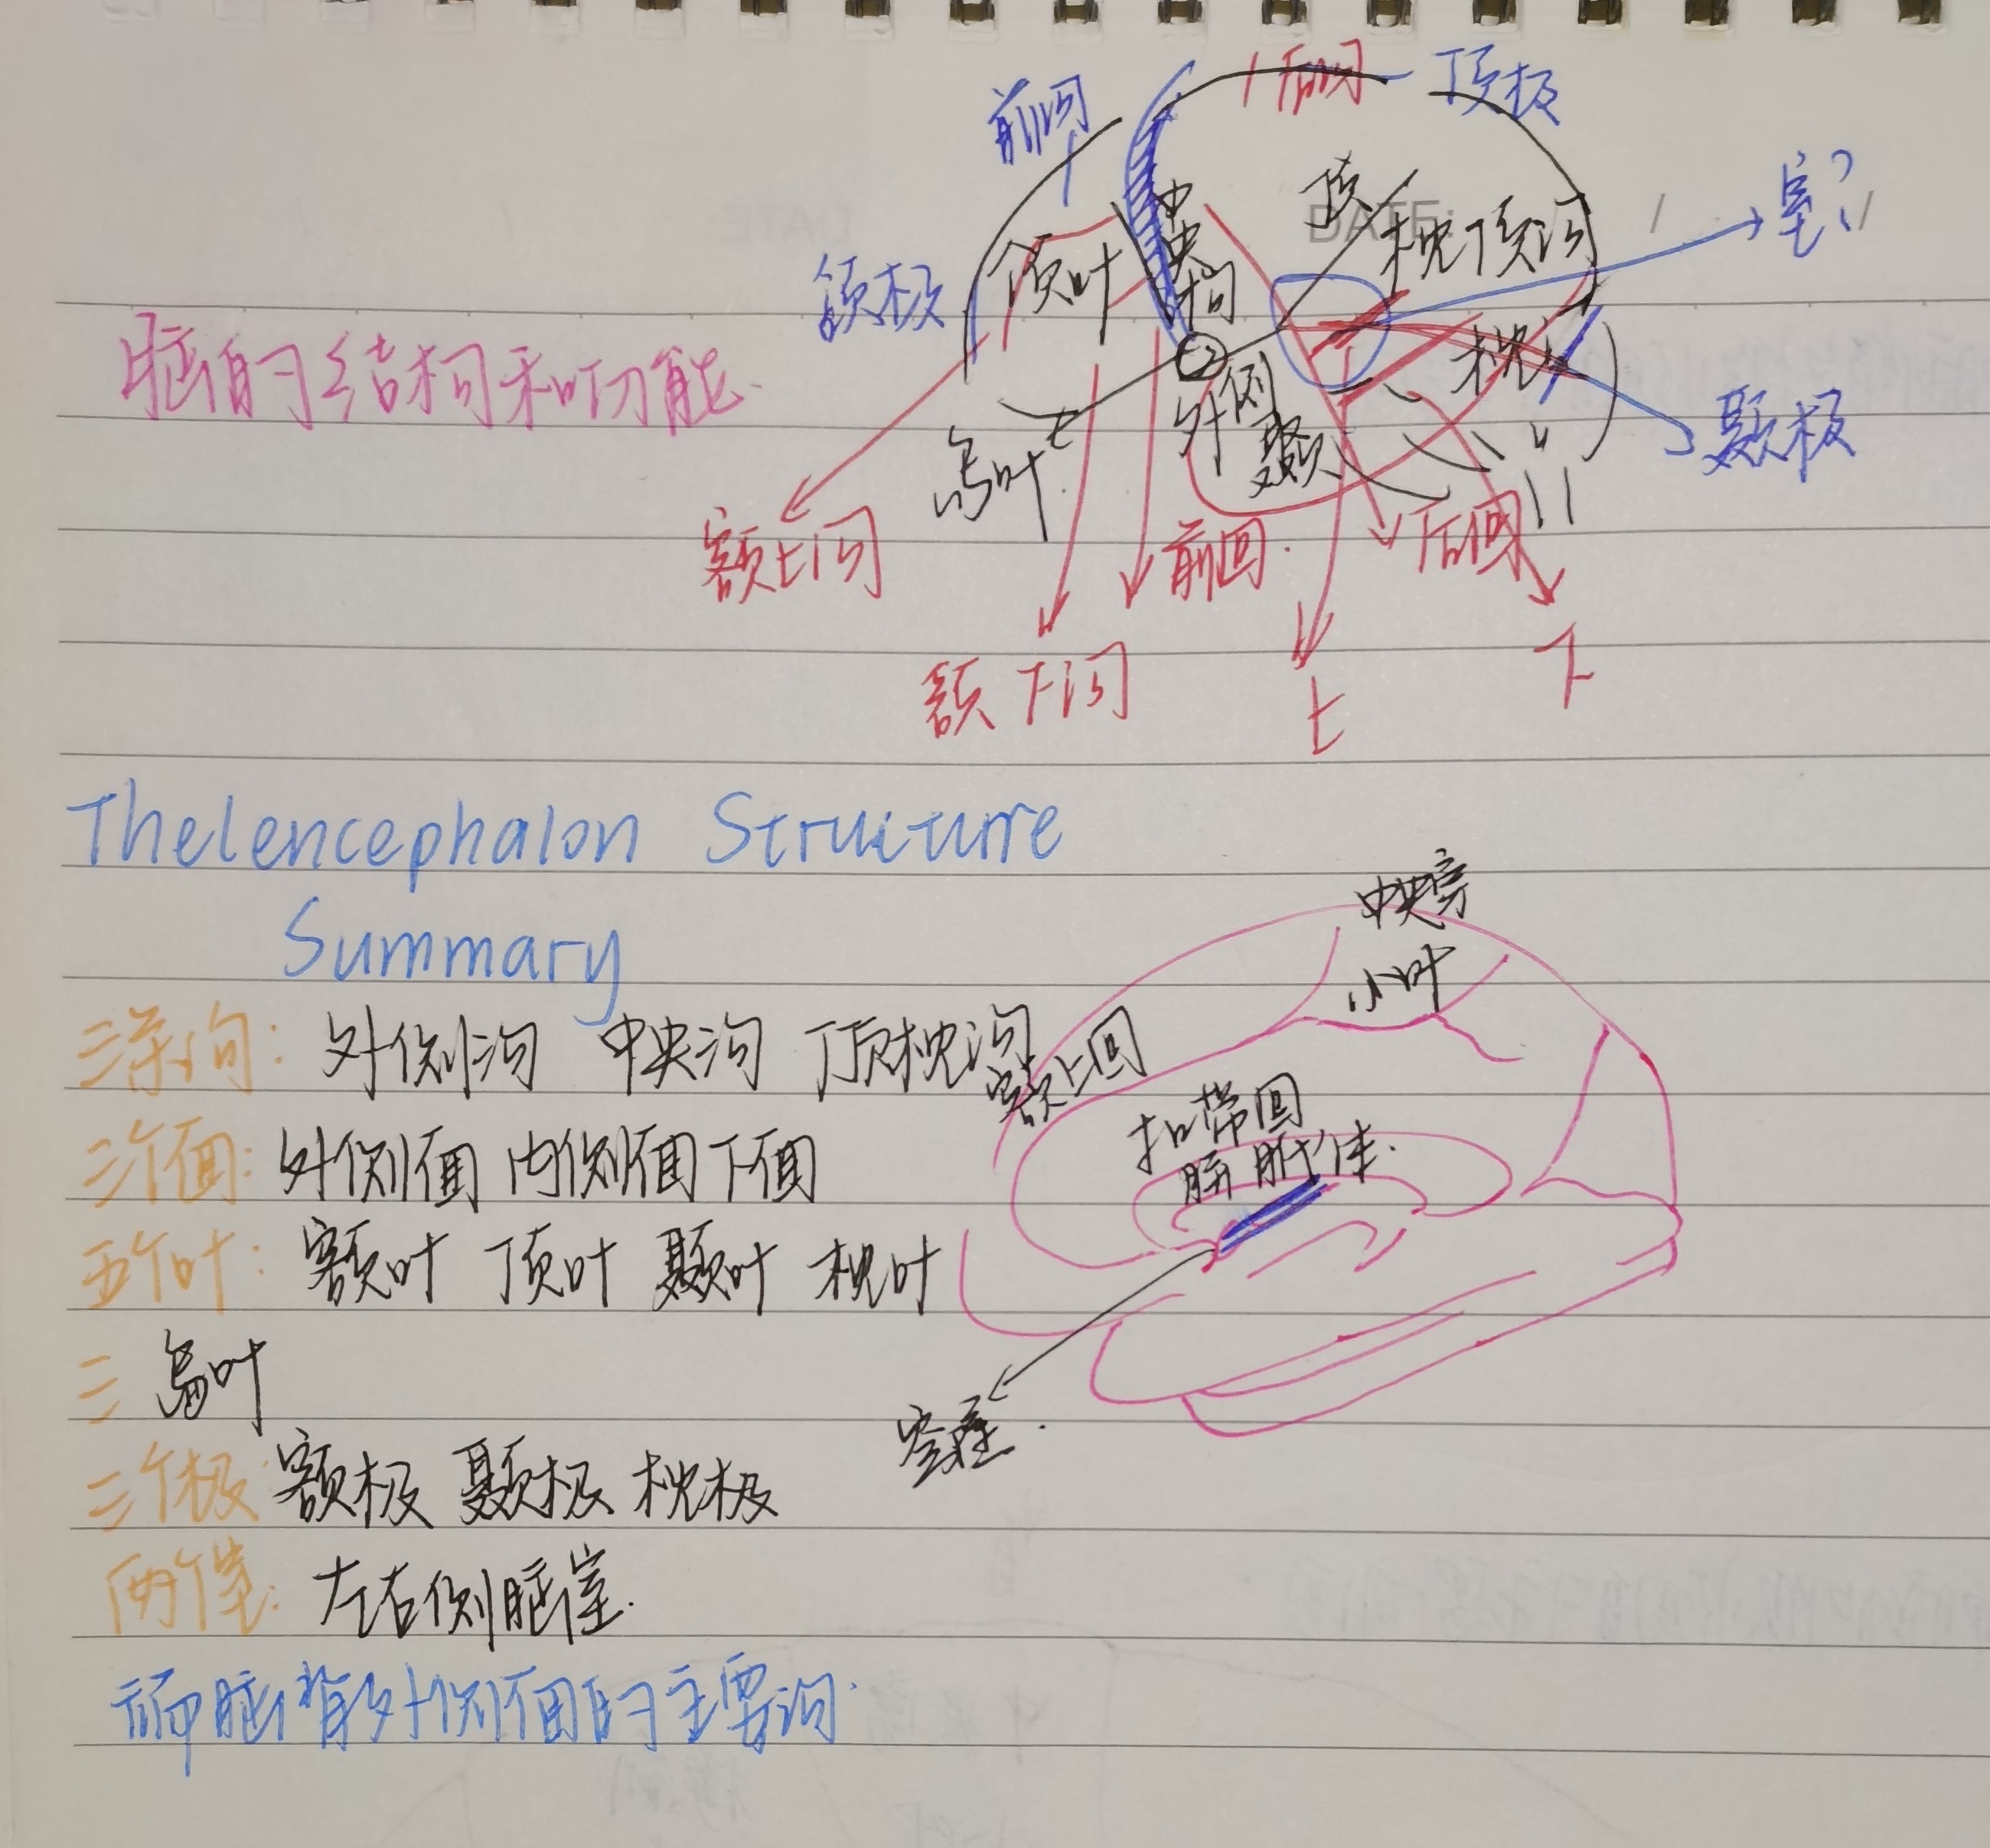 后沟
顶极
前沟
DATE:
室?
顶
枕顶沟
中央沟
顶叶
额极
脑的结构和功能.
枕
外侧
颞
颞极
岛叶
额上沟
前回.
后回
额下沟
上
下
Thelencephalon Structurre
Summary
中央旁
小叶
三条沟: 外侧沟 中央沟 顶枕沟
额上回
三个面: 外侧面 内侧面 下面
扣带回
胼胝体.
五个叶: 额叶 顶叶 颞叶 枕叶
岛叶
三个极: 额极 颞极 枕极
两个室: 左右侧脑室.
端脑背外侧面的主要沟.